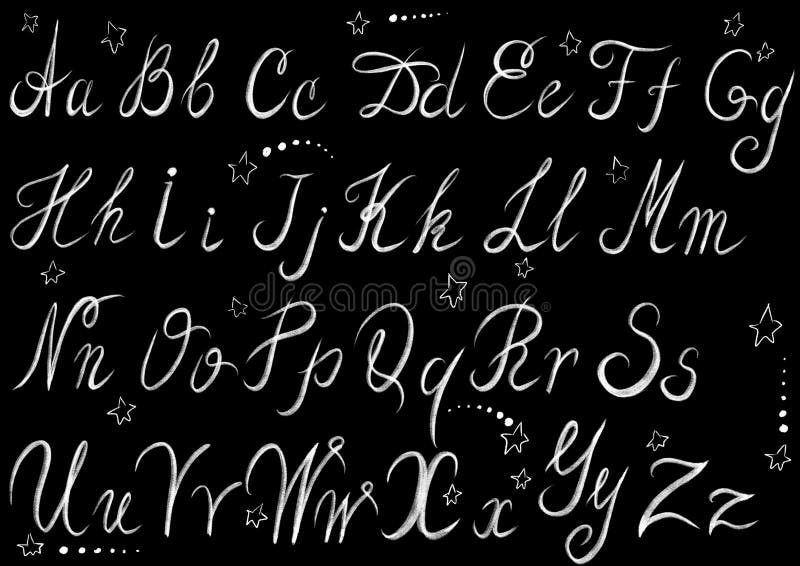 Aa Bb Cc Dd Ee Ff Gg
Hh İi Jj Kk Ll Mm
dreamstime
Nn Oo Pp Qq Rr Ss
Uu Vv Ww Xx Yy Zz